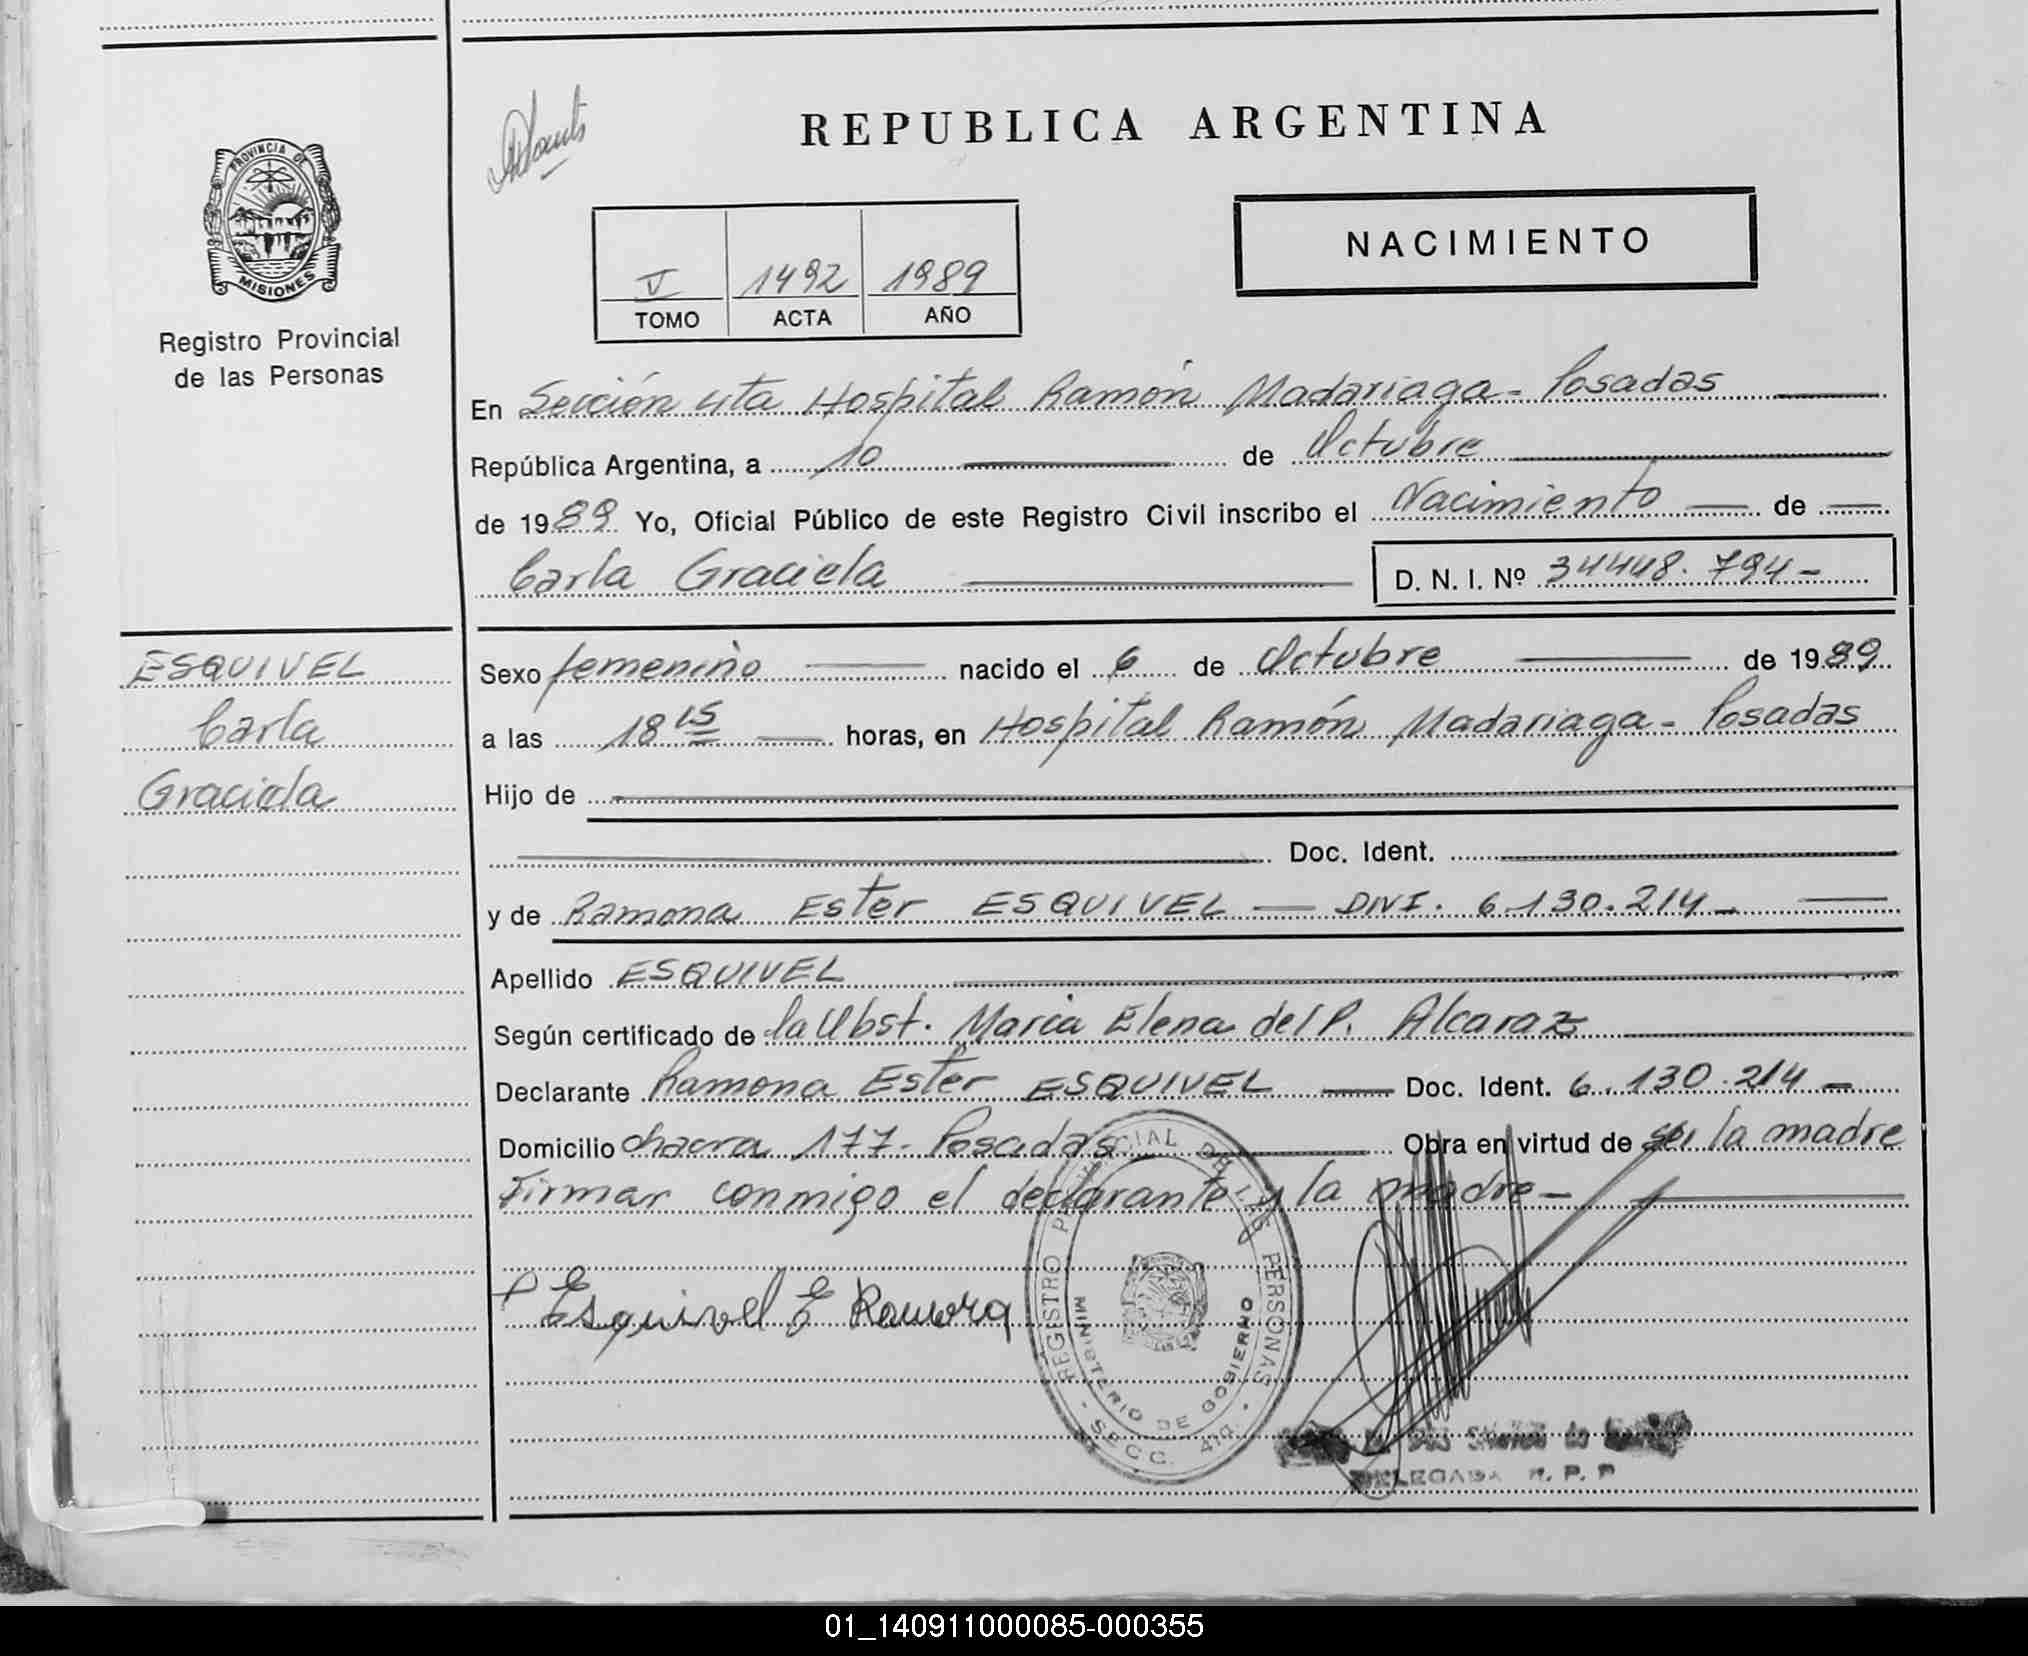 REPUBLICA ARGENTINA
PROVINCIA DE
MISIONES
Registro Provincial
de las Personas
NACIMIENTO
V 1492 1989
TOMO ACTA AÑO
En Sección 4ta Hospital Ramón Madariaga - Posadas
República Argentina, a 10 de Octubre
de 1989 Yo, Oficial Público de este Registro Civil inscribo el Nacimiento de
Carla Graciela D. N. I. Nº 34448.794-
ESQUIVEL
Carla
Graciela
Sexo femenino nacido el 6 de Octubre de 1989
a las 18 15 horas, en Hospital Ramón Madariaga - Posadas
Hijo de
Doc. Ident.
y de Ramona Ester ESQUIVEL — DNI. 6.130.214-
Apellido ESQUIVEL
Según certificado de la Obst. Maria Elena del P. Alcaraz
Declarante Ramona Ester ESQUIVEL — Doc. Ident. 6.130.214-
Domicilio chacra 177- Posadas Obra en virtud de ser la madre
Firman conmigo el declarante y la madre-
Esquivel E Ramona
REGISTRO PROVINCIAL DE LAS PERSONAS
MINISTERIO DE GOBIERNO
- SECC. 4ta. -
DELEGADA R. P. P
01_140911000085-000355